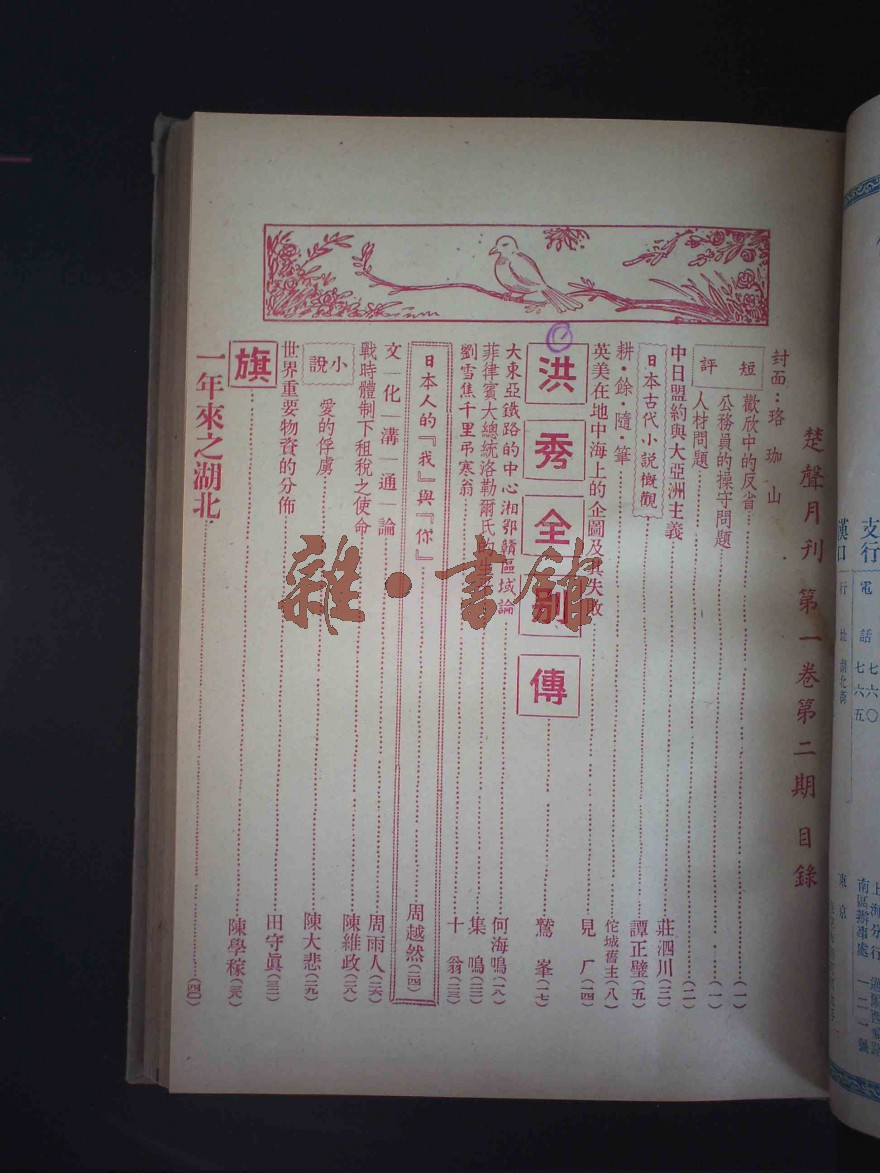 楚聲月刊 第一卷第二期目錄
封面：珞珈山
短評
歡欣中的反省（一）
公務員的操守問題（一）
人材問題（二）
中日盟約與大亞洲主義 莊泗川（三）
日本古代小說概觀 譚正璧（五）
耕·餘·隨·筆 佗城舊主（八）
英美在地中海上的企圖及其失敗 見厂（一四）
洪秀全別傳 鷲峯（一七）
大東亞鐵路的中心湘鄂贛區域論 何海鳴（一八）
菲律賓大總統洛勒爾氏 集鳴（二二）
劉雪焦千里弔寒翁 十翁（二三）
日本人的『我』與『你』 周越然（二四）
文—化—溝—通—論 周雨人（二六）
戰時體制下租稅之使命 陳維政（二八）
小說
愛的俘虜 陳大悲（二九）
世界重要物資的分佈 田守眞（三二）
旗 陳學稼（三六）
一年來之湖北（四〇）
雜·書館
支行
漢口
電話
七六〇
七六五
行址
湖北街
東京
上海分行
南區辦事處
一二一號